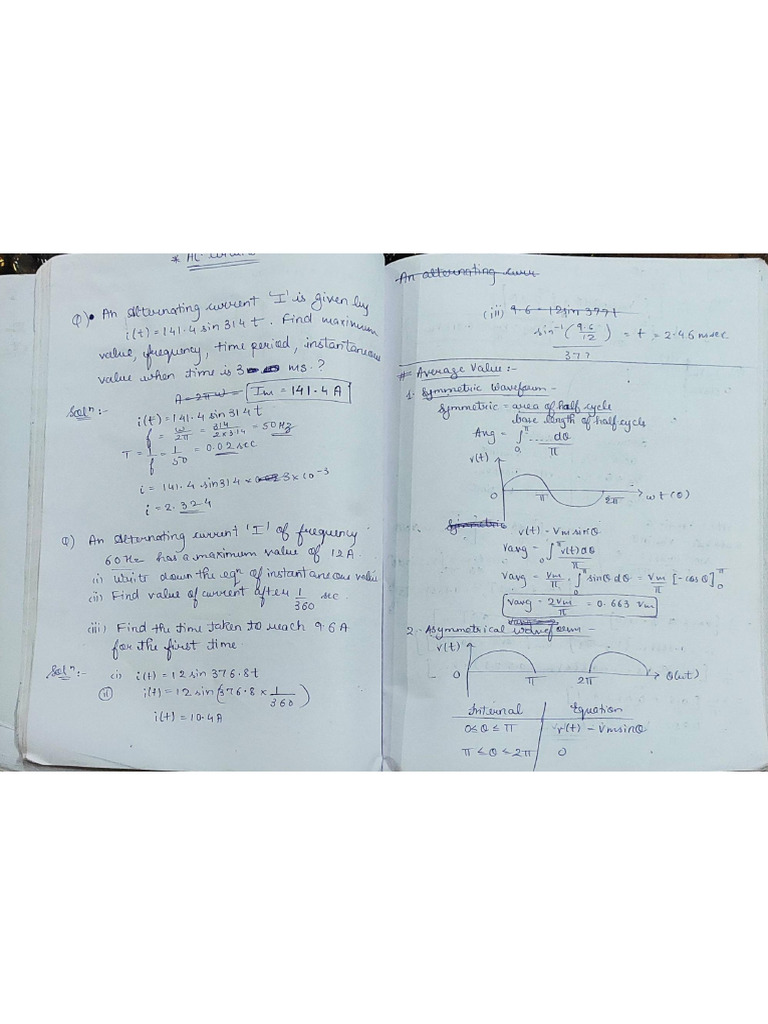 * AC
Q). An Alternating current 'I' is given by
i(t) = 141.4 sin 314 t. Find maximum
value, frequency, time period, instantaneous
value when time is 3 ms. ?
A = 2πω = Im = 141.4 A
Solⁿ:- i(t) = 141.4 sin 314 t
f = ω/2π = 314/2×3.14 = 50 Hz
T = 1/f = 1/50 = 0.02 sec
i = 141.4 sin 314 × 3×10⁻³
i = 2.324
Q) An Alternating current 'I' of frequency
60 Hz has a maximum value of 12 A.
(i) Write down the eqⁿ of instantaneous value
(ii) Find value of current after 1/360 sec.
(iii) Find the time taken to reach 9.6 A
for the first time.
Solⁿ:- (i) i(t) = 12 sin 376.8t
(ii) i(t) = 12 sin (376.8 × 1/360)
i(t) = 10.4 A
An alternating curr
(iii) 9.6 = 12 sin 377t
sin⁻¹(9.6/12)/377 = t = 2.46 msec
# Average Value:-
1. Symmetric Waveform -
Symmetric = area of half cycle / base length of half cycle
Avg = ∫₀^π ..... dθ / π
v(t)
0 π 2π → wt (θ)
Symmetric v(t) - Vm sinθ
Vavg = ∫₀^π v(t)dθ / π
Vavg = Vm/π . ∫₀^π sinθ dθ = Vm/π [-cos θ]₀^π
Vavg - 2Vm/π = 0.663 Vm
Vavg
2. Asymmetrical Waveform -
v(t)
0 π 2π → θ(wt)
Internal Equation
0≤θ≤π v(t) - Vmsinθ
π≤θ≤2π 0